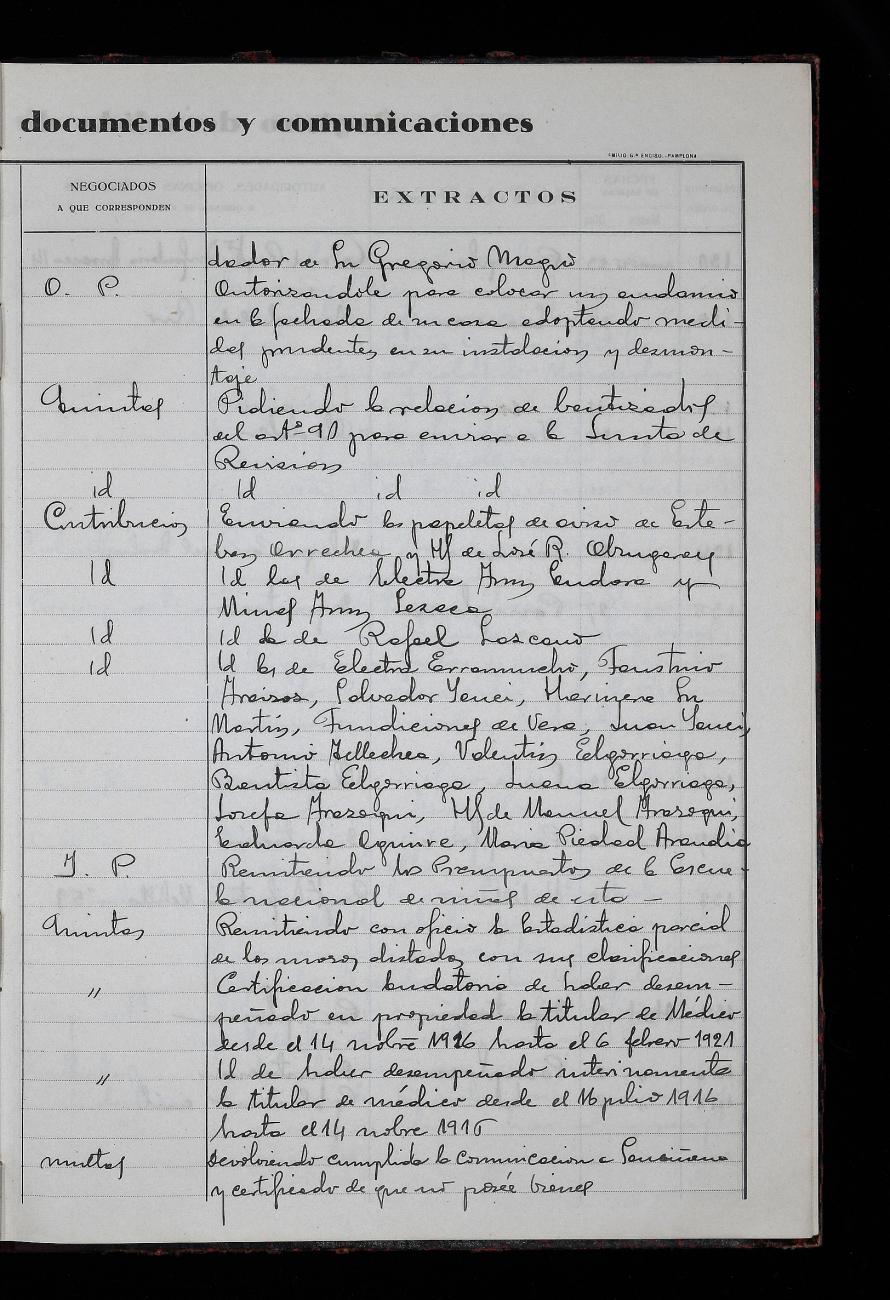 documentos y comunicaciones
EMILIO G.ª ENCISO.-PAMPLONA
NEGOCIADOS
A QUE CORRESPONDEN
EXTRACTOS
dador de Sn Gregorio Magno
O. P. Autorizandole para colocar un andamio
en la fachada de su casa adoptando medi-
das prudentes en su instalacion y desmon-
taje
Quintas Pidiendo la relacion de bautizados
del artº 90 para enviar a la Junta de
Revision
id id id id
Contribucion Enviando las papeletas de aviso de Este-
ban Arrechea y Hs de José R.
Id Id las de Electra Irun Endara y
Minas Irun Lesaca
Id Id la de Rafael Lozcano
id Id las de Electra Erramucho, Faustino
Araizoz, Salvador Yanci, Harinera Sn
Martin, Fundiciones de Vera, Juan Yanci,
Antonio Tellechea, Valentin Elgorriaga,
Bautista Elgorriaga, Juana Elgorriaga,
Josefa Irazoqui, Hs de Manuel Irazoqui,
Eduardo Aguirre, Maria Piedad Arandia
I. P. Remitiendo los Presupuestos de la Escue-
la nacional de niñas de esta —
Quintas Remitiendo con oficio la Estadistica parcial
de los mozos alistados con sus clasificaciones
" Certificacion laudatoria de haber desem-
peñado en propiedad la titular de Médico
desde el 14 nobre 1916 hasta el 6 febrero 1921
" Id de haber desempeñado interinamente
la titular de médico desde el 16 julio 1916
hasta el 14 nobre 1916
multas Devolviendo cumplida la comunicacion a
y certificado de que no posée bienes